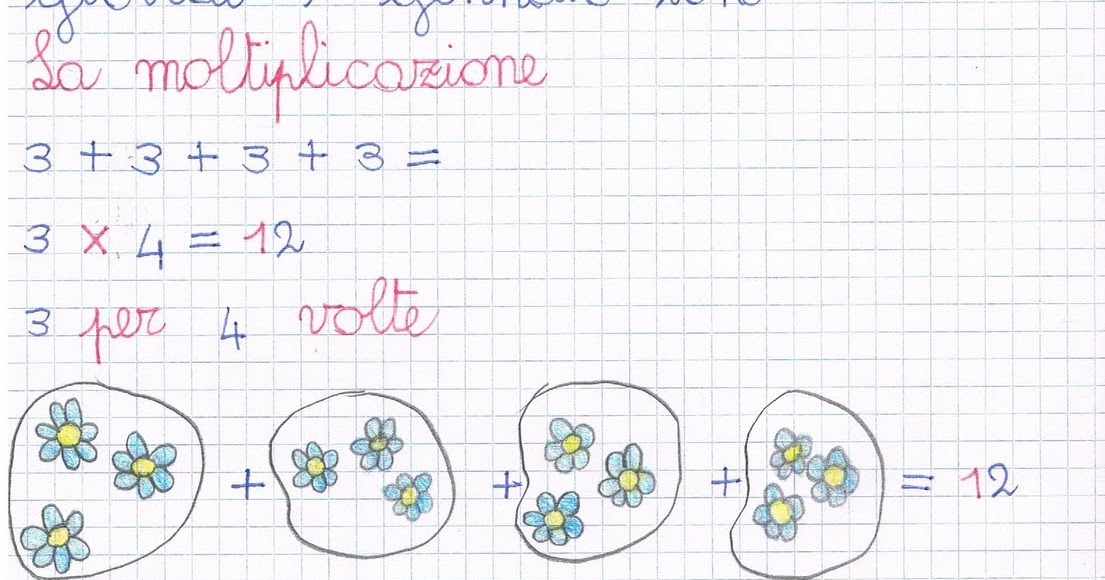 La moltiplicazione
3 + 3 + 3 + 3 =
3 x 4 = 12
3 per 4 volte
+ + + = 12